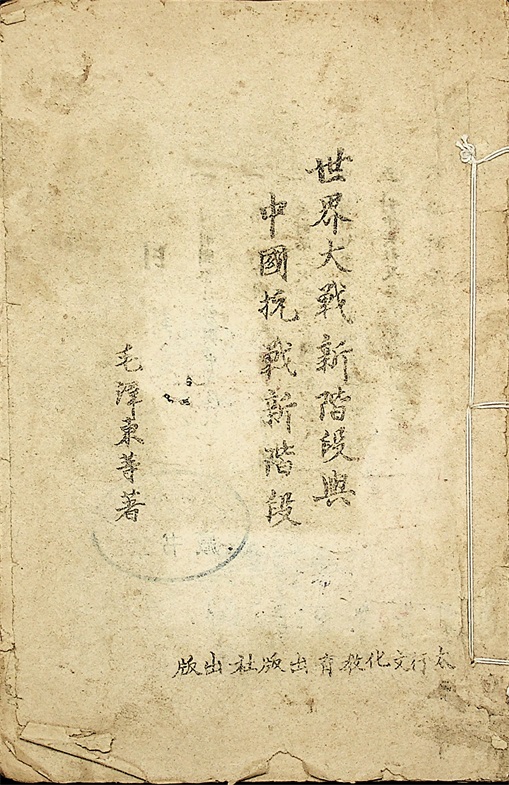 世界大戰新階段與
中國抗戰新階段
毛澤東等著
太行文化教育出版社出版